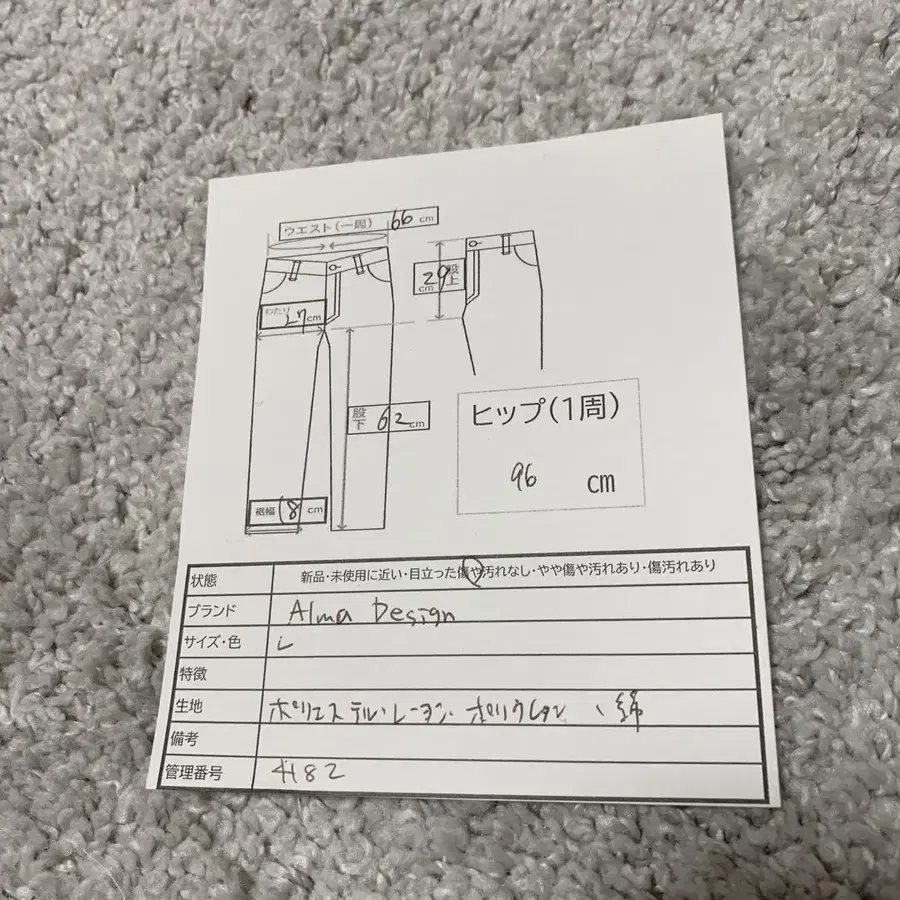 ウエスト(一周) 66 cm
29 股上
cm
わたり 27 cm
股下 62 cm
ヒップ(1周)
96 cm
裾幅 18 cm
状態 新品・未使用に近い・目立った傷や汚れなし・やや傷や汚れあり・傷汚れあり
ブランド Alma Design
サイズ・色 L
特徴
生地 ポリエステル・レーヨン・ポリウレタン、綿
備考
管理番号 4182